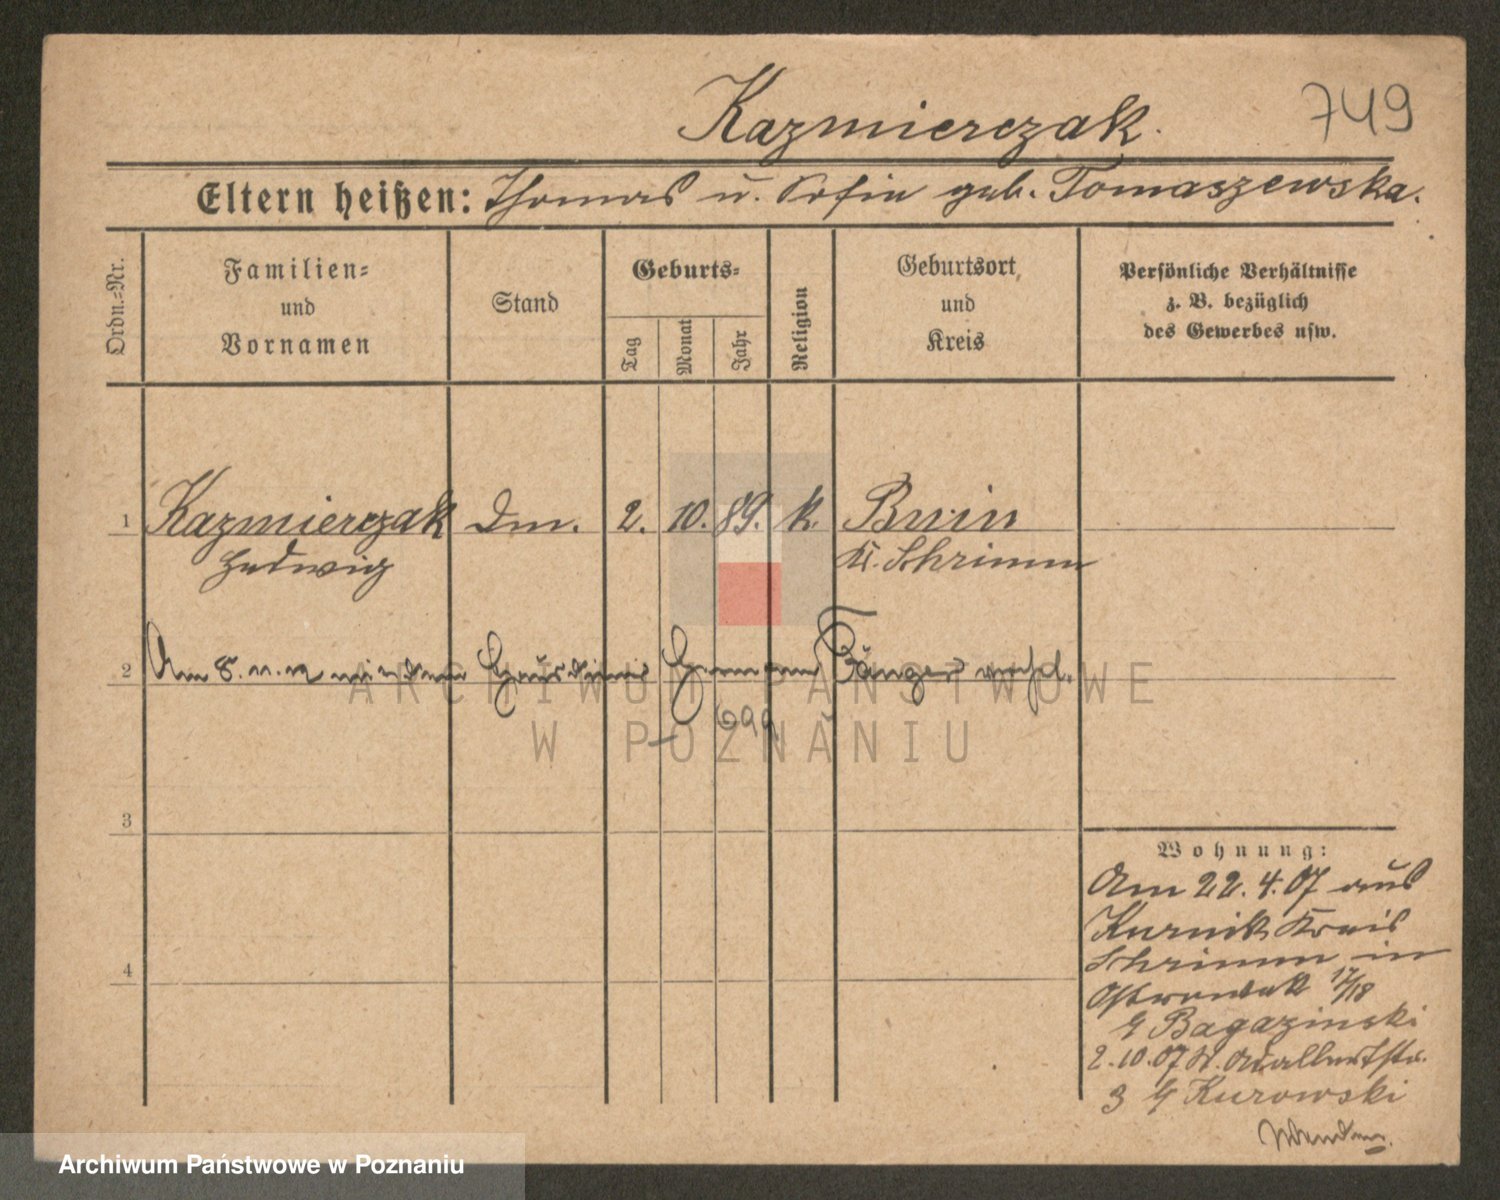 Kazmierczak.
749
Eltern heißen: Thomas u. Sofie geb. Tomaszewska.
Ordn.=Nr.
Familien=
und
Vornamen
Stand
Geburts=
Tag
Monat
Jahr
Religion
Geburtsort
und
Kreis
Persönliche Verhältnisse
z. B. bezüglich
des Gewerbes usw.
1 Kazmierczak Dm. 2. 10. 89. k. Bnin
Hedwig Kr. Schrimm
2 Am 8. mit dem Hausdiener Hermann Bänger verh.
699
3
4
Wohnung:
Am 22. 4. 07 aus
Kurnik Kreis
Schrimm in
Ostrowek 17/18
b/ Bagazinski
2. 10. 07 St. Adalbertstr.
3 b/ Kurowski
Wenden.
ARCHIWUM PAŃSTWOWE
W POZNANIU
Archiwum Państwowe w Poznaniu